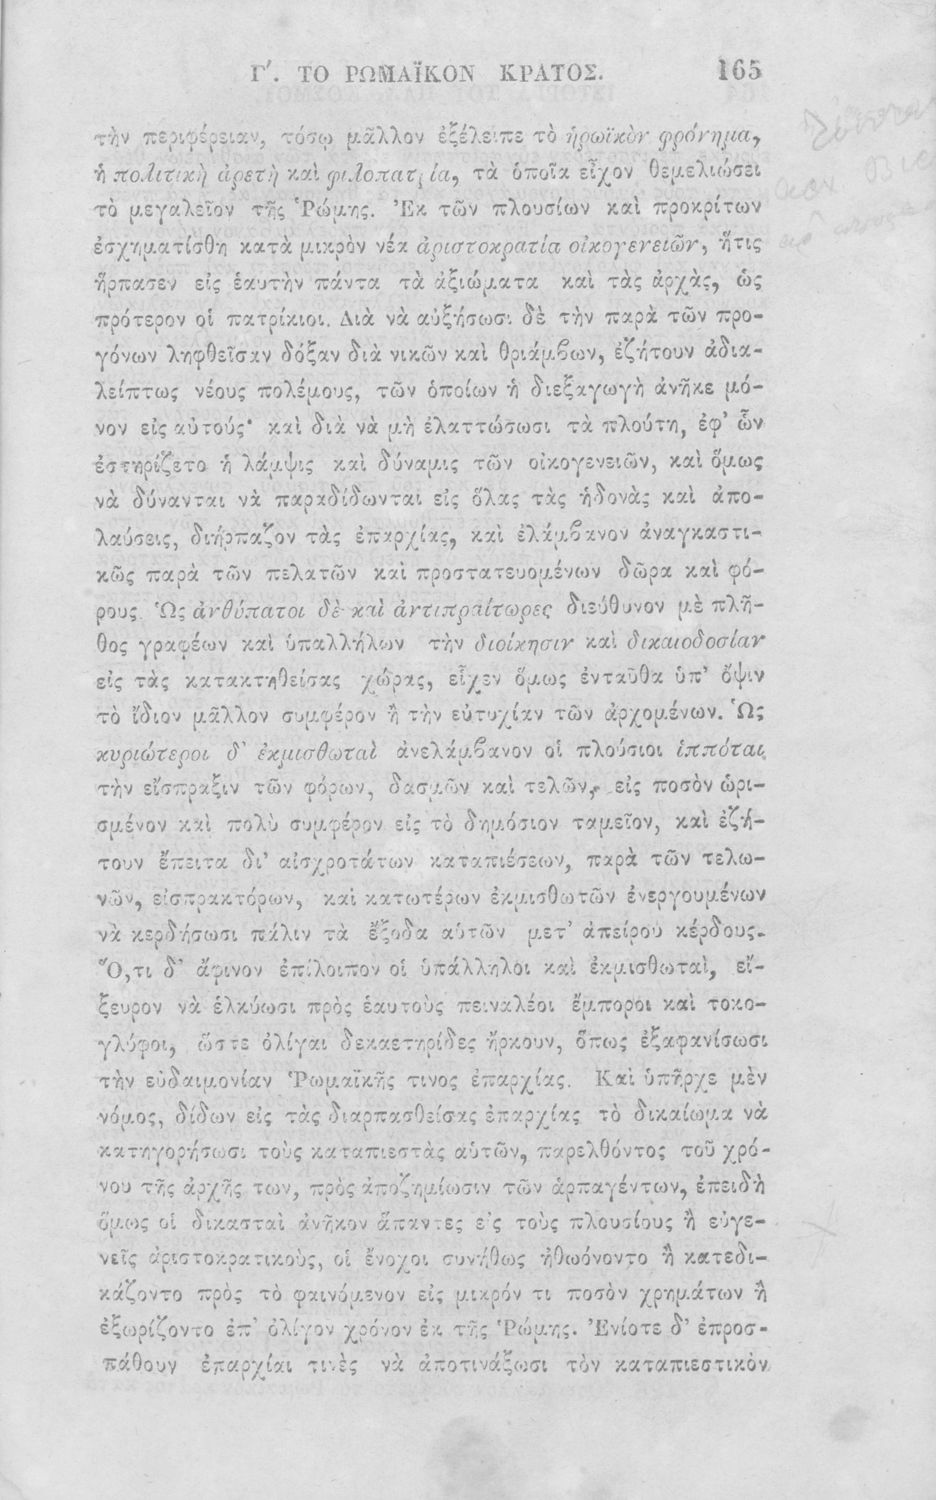 Γ΄. ΤΟ ΡΩΜΑΪΚΟΝ ΚΡΑΤΟΣ. 165
τὴν περιφέρειαν, τόσῳ μᾶλλον ἐξέλειπε τὸ ἡρωϊκὸν φρόνημα,
ἡ πολιτικὴ ἀρετὴ καὶ φιλοπατρία, τὰ ὁποῖα εἶχον θεμελιώσει
τὸ μεγαλεῖον τῆς Ῥώμης. Ἐκ τῶν πλουσίων καὶ προκρίτων
ἐσχηματίσθη κατὰ μικρὸν νέα ἀριστοκρατία οἰκογενειῶν, ἥτις
ἥρπασεν εἰς ἑαυτὴν πάντα τὰ ἀξιώματα καὶ τὰς ἀρχὰς, ὡς
πρότερον οἱ πατρίκιοι. Διὰ νὰ αὐξήσωσι δὲ τὴν παρὰ τῶν προ-
γόνων ληφθεῖσαν δόξαν διὰ νικῶν καὶ θριάμβων, ἐζήτουν ἀδια-
λείπτως νέους πολέμους, τῶν ὁποίων ἡ διεξαγωγὴ ἀνῆκε μό-
νον εἰς αὐτούς· καὶ διὰ νὰ μὴ ἐλαττώσωσι τὰ πλούτη, ἐφ' ὧν
ἐστηρίζετο ἡ λάμψις καὶ δύναμις τῶν οἰκογενειῶν, καὶ ὅμως
νὰ δύνανται νὰ παραδίδωνται εἰς ὅλας τὰς ἡδονὰς καὶ ἀπο-
λαύσεις, διήρπαζον τὰς ἐπαρχίας, καὶ ἐλάμβανον ἀναγκαστι-
κῶς παρὰ τῶν πελατῶν καὶ προστατευομένων δῶρα καὶ φό-
ρους. Ὡς ἀνθύπατοι δὲ καὶ ἀντιπραίτωρες διεύθυνον μὲ πλῆ-
θος γραφέων καὶ ὑπαλλήλων τὴν διοίκησιν καὶ δικαιοδοσίαν
εἰς τὰς κατακτηθείσας χώρας, εἶχεν ὅμως ἐνταῦθα ὑπ' ὄψιν
τὸ ἴδιον μᾶλλον συμφέρον ἢ τὴν εὐτυχίαν τῶν ἀρχομένων. Ὡς
κυριώτεροι δ' ἐκμισθωταὶ ἀνελάμβανον οἱ πλούσιοι ἱππόται
τὴν εἴσπραξιν τῶν φόρων, δασμῶν καὶ τελῶν, εἰς ποσὸν ὡρι-
σμένον καὶ πολὺ συμφέρον εἰς τὸ δημόσιον ταμεῖον, καὶ ἐζή-
τουν ἔπειτα δι' αἰσχροτάτων καταπιέσεων, παρὰ τῶν τελω-
νῶν, εἰσπρακτόρων, καὶ κατωτέρων ἐκμισθωτῶν ἐνεργουμένων
νὰ κερδήσωσι πάλιν τὰ ἔξοδα αὑτῶν μετ' ἀπείρου κέρδους.
Ὅ,τι δ' ἄφινον ἐπίλοιπον οἱ ὑπάλληλοι καὶ ἐκμισθωταὶ, εἴ-
ξευρον νὰ ἑλκύωσι πρὸς ἑαυτοὺς πειναλέοι ἔμποροι καὶ τοκο-
γλύφοι, ὥστε ὀλίγαι δεκαετηρίδες ἤρκουν, ὅπως ἐξαφανίσωσι
τὴν εὐδαιμονίαν Ῥωμαϊκῆς τινος ἐπαρχίας. Καὶ ὑπῆρχε μὲν
νόμος, δίδων εἰς τὰς διαρπασθείσας ἐπαρχίας τὸ δικαίωμα νὰ
κατηγορήσωσι τοὺς καταπιεστὰς αὑτῶν, παρελθόντος τοῦ χρό-
νου τῆς ἀρχῆς των, πρὸς ἀποζημίωσιν τῶν ἁρπαγέντων, ἐπειδὴ
ὅμως οἱ δικασταὶ ἀνῆκον ἅπαντες εἰς τοὺς πλουσίους ἢ εὐγε-
νεῖς ἀριστοκρατικοὺς, οἱ ἔνοχοι συνήθως ἠθωόνοντο ἢ κατεδι-
κάζοντο πρὸς τὸ φαινόμενον εἰς μικρόν τι ποσὸν χρημάτων ἢ
ἐξωρίζοντο ἐπ' ὀλίγον χρόνον ἐκ τῆς Ῥώμης. Ἐνίοτε δ' ἐπροσ-
πάθουν ἐπαρχίαι τινὲς νὰ ἀποτινάξωσι τὸν καταπιεστικὸν